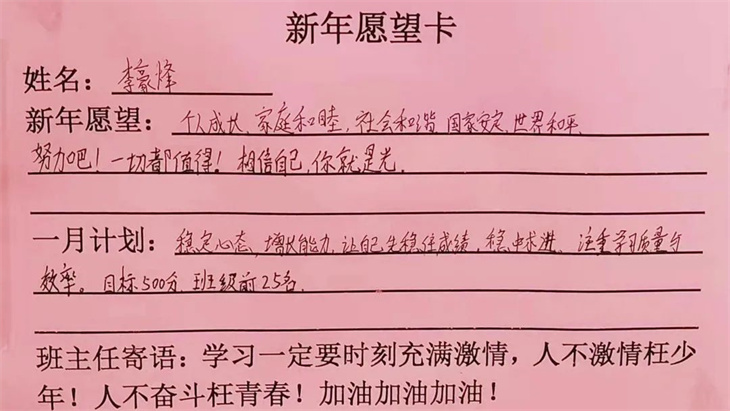 新年愿望卡
姓名：李豪烽
新年愿望：个人成长，家庭和睦，社会和谐，国家安定，世界和平，
努力吧！一切都值得！相信自己，你就是光。
一月计划：稳定心态，增长能力，让自己先稳住成绩，稳中求进，注重学习质量与
效率。目标500分，班级前25名。
班主任寄语：学习一定要时刻充满激情，人不激情枉少
年！人不奋斗枉青春！加油加油加油！